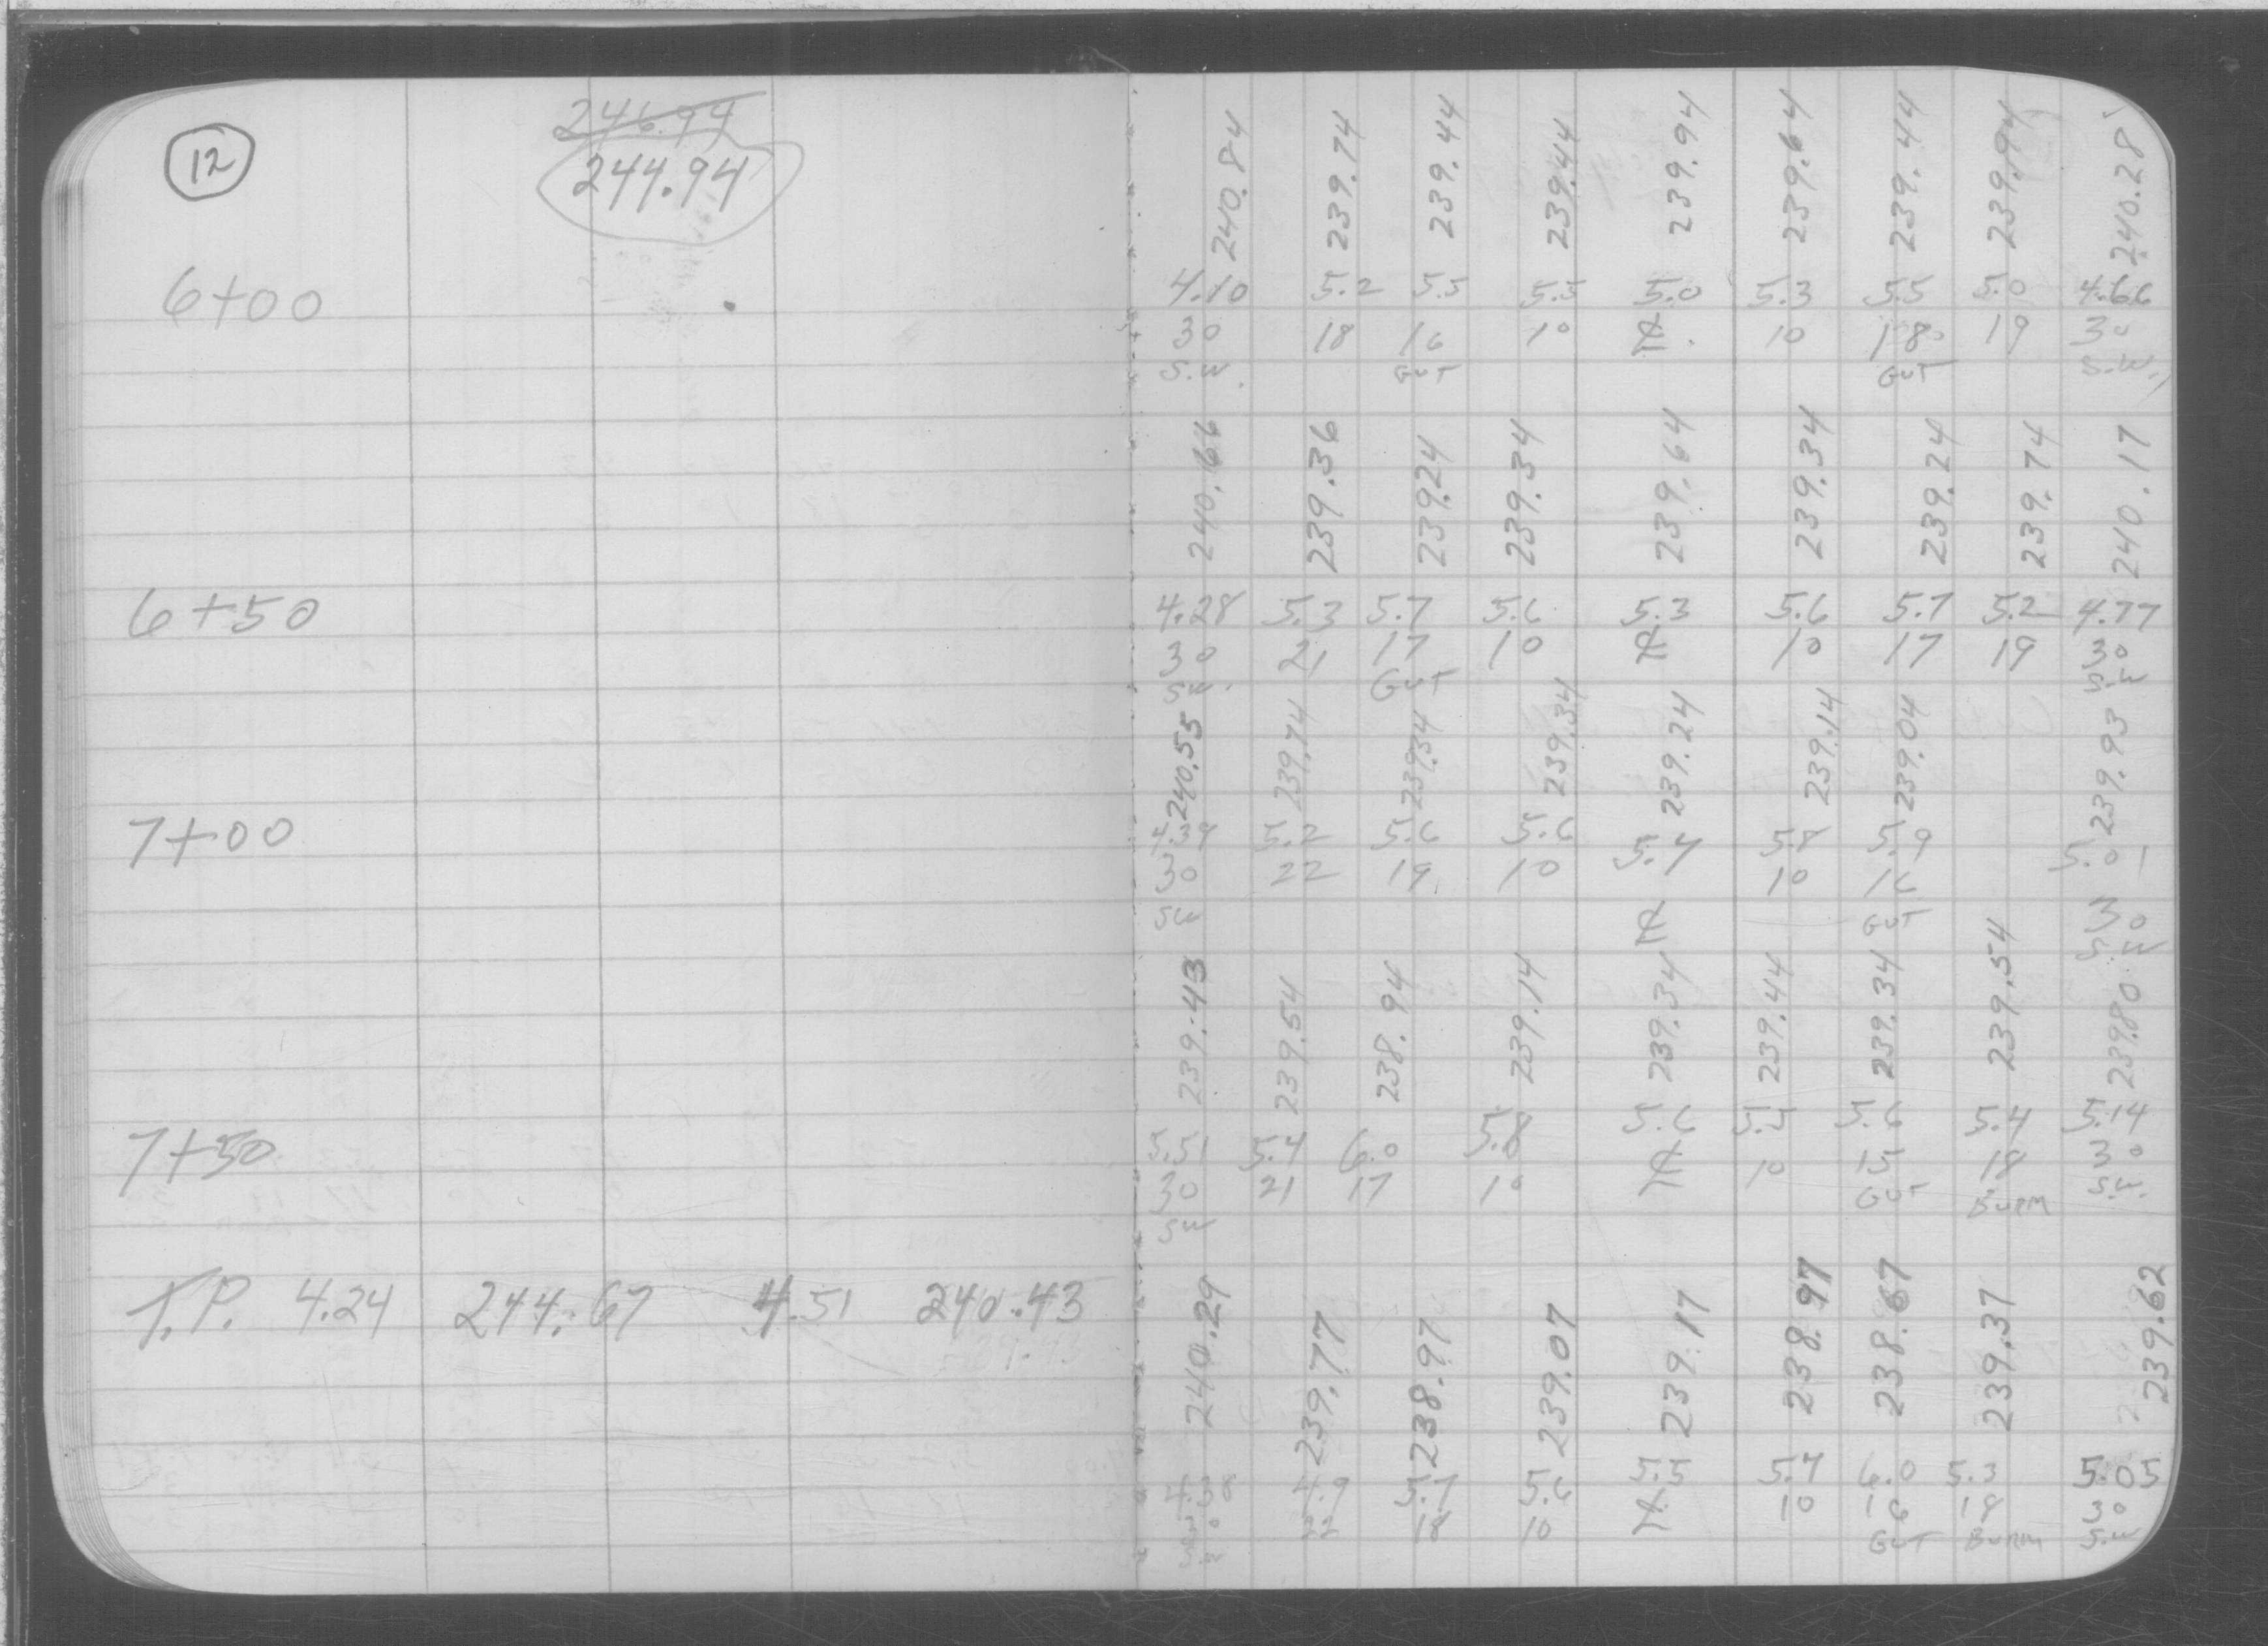 12
246.94
244.94
240.84 239.74 239.44 239.44 239.94 239.64 239.44 239.94 240.28
6+00 4.10 5.2 5.5 5.5 5.0 5.3 5.5 5.0 4.66
30 18 16 10 ℄ 10 18 19 30
S.W. GUT GUT S.W.
240.66 239.36 239.24 239.34 239.64 239.34 239.24 239.74 240.17
6+50 4.28 5.3 5.7 5.6 5.3 5.6 5.7 5.2 4.77
30 21 17 10 ℄ 10 17 19 30
SW. GUT S.W
240.55 239.74 239.34 239.34 239.24 239.14 239.04 239.93
7+00 4.39 5.2 5.6 5.6 5.7 5.8 5.9 5.01
30 22 19 10 ℄ 10 16 30
SW GUT S.W
239.43 239.54 238.94 239.14 239.34 239.44 239.34 239.54 239.80
7+50 5.51 5.4 6.0 5.8 5.6 5.5 5.6 5.4 5.14
30 21 17 10 ℄ 10 15 18 30
SW GUT BURM S.W.
T.P. 4.24 244.67 4.51 240.43
240.29 239.77 238.97 239.07 239.17 238.97 238.67 239.37 239.62
4.38 4.9 5.7 5.6 5.5 5.7 6.0 5.3 5.05
30 22 18 10 ℄ 10 16 18 30
SW GUT BURM S.W